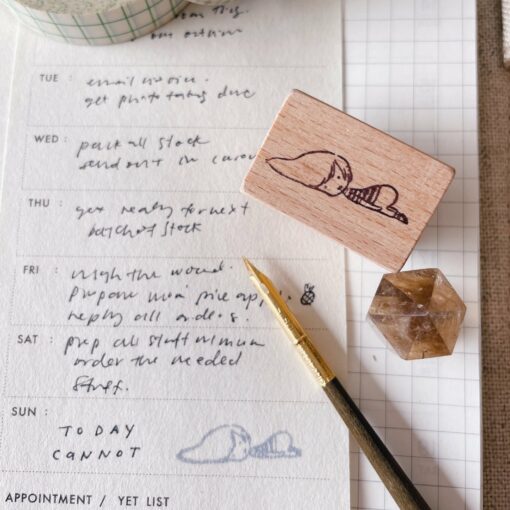 TUE :
email invoice.
get photo taking done
WED :
pack all stock
send out in
THU :
get ready for next
batch of stock
FRI :
prepare
reply all orders.
SAT :
prep all stuff
order the needed
stuff.
SUN :
TODAY
CANNOT
APPOINTMENT / YET LIST